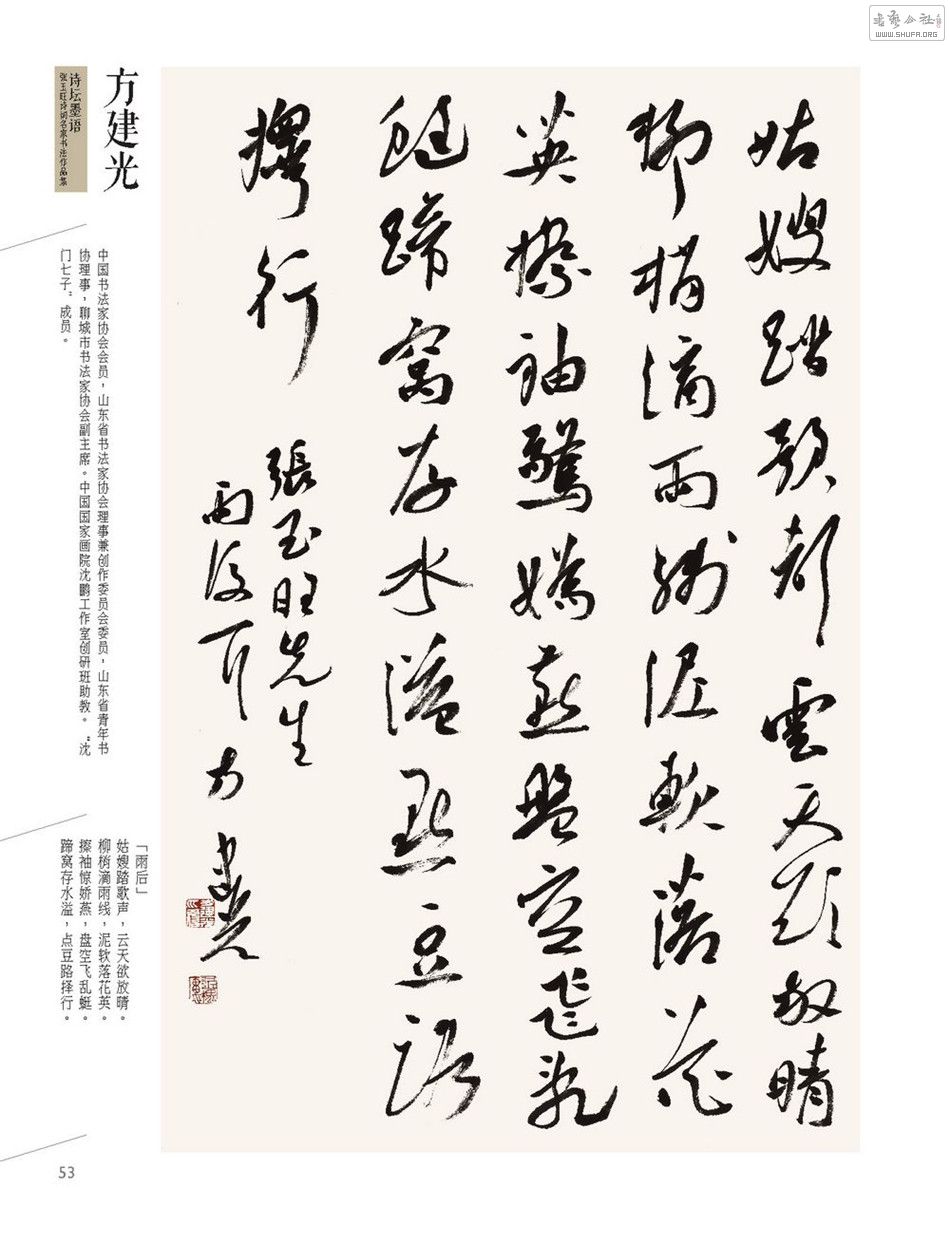 書藝公社
WWW.SHUFA.ORG
姑嫂踏歌声雲天欲放晴
柳梢滴雨綫泥軟落花
英擦袖驚嬌燕盤空飛乱
蜓蹄窝存水溢點豆路
擇行
張玉旺先生
雨後 方建光
方建光
诗坛墨语
张玉旺诗词名家书法作品集
中国书法家协会会员，山东省书法家协会理事兼创作委员会委员，山东省青年书
协理事，聊城市书法家协会副主席。中国国家画院沈鹏工作室创研班助教。“沈
门七子”成员。
「雨后」
姑嫂踏歌声，云天欲放晴。
柳梢滴雨线，泥软落花英。
擦袖惊娇燕，盘空飞乱蜓。
蹄窝存水溢，点豆路择行。
53